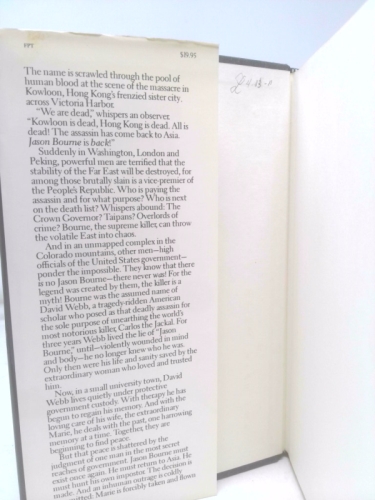 FPT $19.95
The name is scrawled through the pool of
human blood at the scene of the massacre in
Kowloon, Hong Kong's frenzied sister city
across Victoria Harbor.
"We are dead," whispers an observer.
"Kowloon is dead, Hong Kong is dead. All is
dead! The assassin has come back to Asia.
Jason Bourne is back!"
Suddenly in Washington, London and
Peking, powerful men are terrified that the
stability of the Far East will be destroyed, for
among those brutally slain is a vice-premier of
the People's Republic. Who is paying the
assassin and for what purpose? Who is next
on the death list? Whispers abound: The
Crown Governor? Taipans? Overlords of
crime? Bourne, the supreme killer, can throw
the volatile East into chaos.
And in an unmapped complex in the
Colorado mountains, other men—high
officials of the United States government—
ponder the impossible. They know that there
is no Jason Bourne—there never was! For the
legend was created by them, the killer is a
myth! Bourne was the assumed name of
David Webb, a tragedy-ridden American
scholar who posed as that deadly assassin for
the sole purpose of unearthing the world's
most notorious killer, Carlos the Jackal. For
three years Webb lived the lie of "Jason
Bourne," until—violently wounded in mind
and body—he no longer knew who he was.
Only then were his life and sanity saved by the
extraordinary woman who loved and trusted
him.
Now, in a small university town, David
Webb lives quietly under protective
government custody. With therapy he has
begun to regain his memory. And with the
loving care of his wife, the extraordinary
Marie, he deals with the past, one harrowing
memory at a time. Together, they are
beginning to find peace.
But that peace is shattered by the
judgment of one man in the most secret
reaches of government. Jason Bourne must
exist once again. He must return to Asia. He
must hunt his own impostor. The decision is
made. And an inhuman outrage is coldly
Marie is forcibly taken and flown